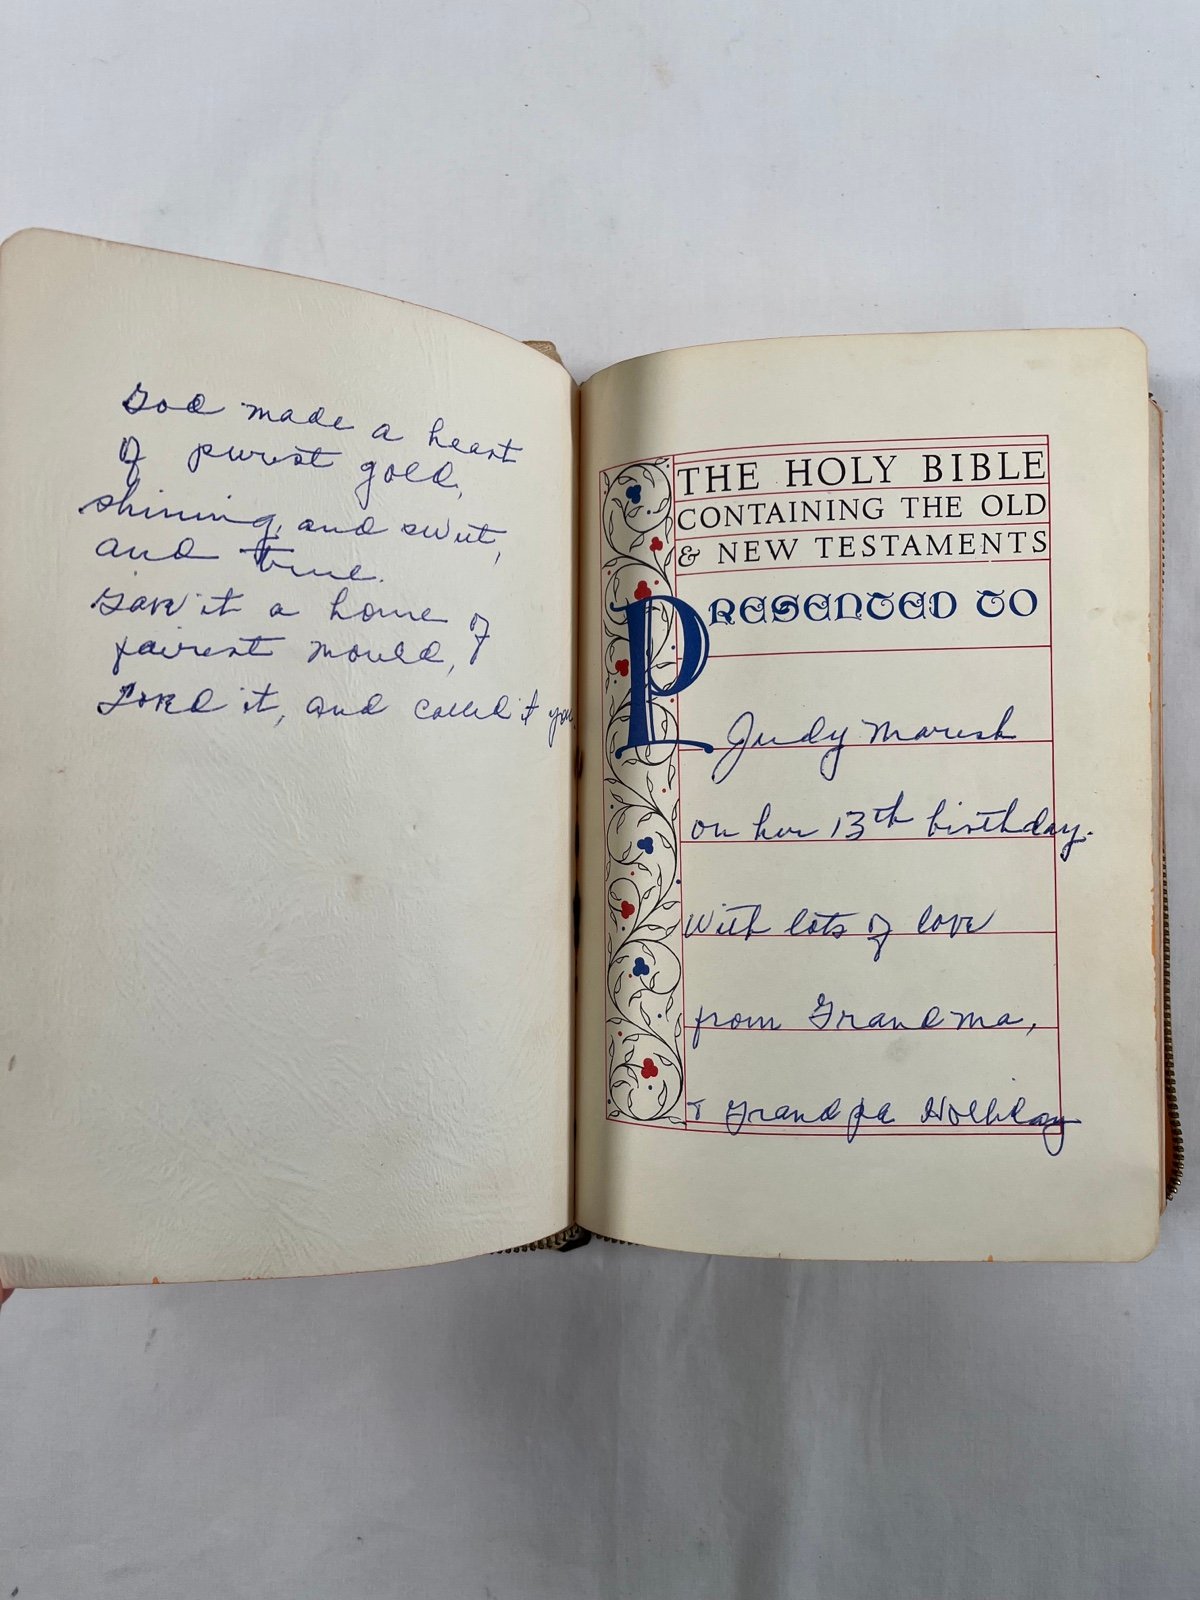 God made a heart
of purest gold,
shining, and sweet,
and true.
Gave it a home of
fairest mould,
Loved it, and called it you.
THE HOLY BIBLE
CONTAINING THE OLD
& NEW TESTAMENTS
PRESENTED TO
Judy Maresh
on her 13th birthday.
With lots of love
from Grandma,
& Grandpa Holliday